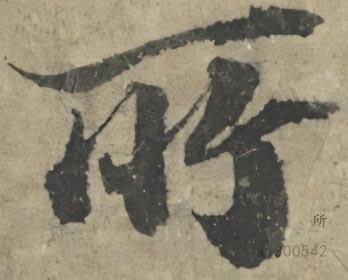 所
所
a1600542